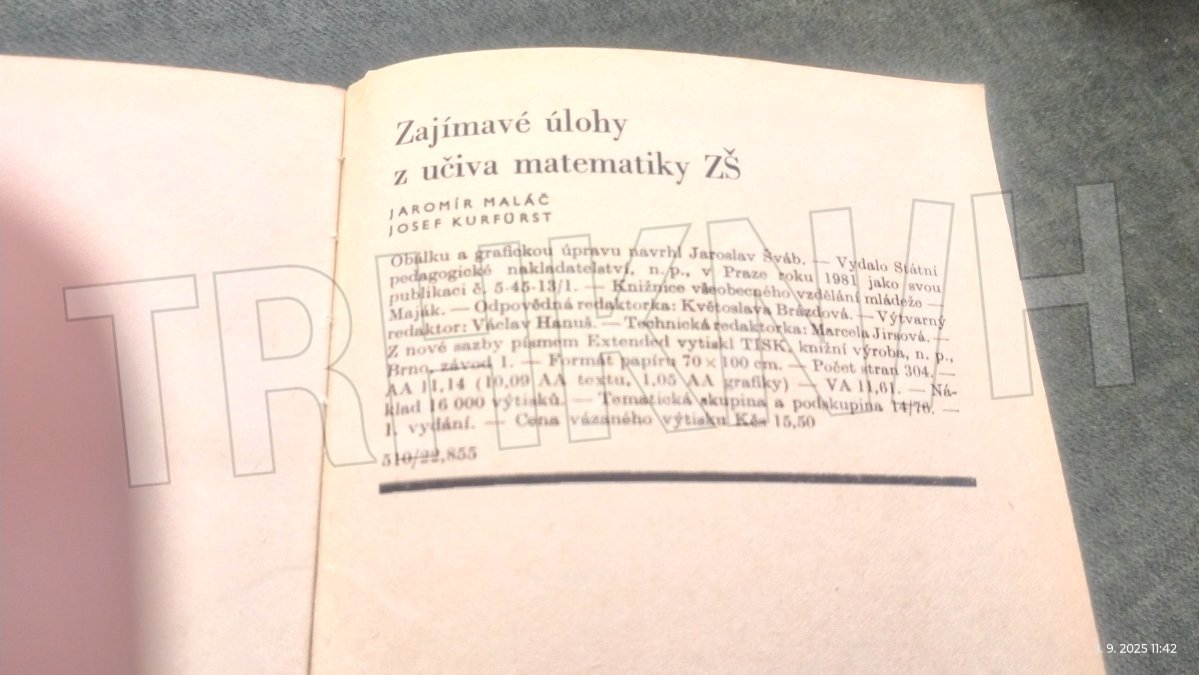 Zajímavé úlohy
z učiva matematiky ZŠ
JAROMÍR MALÁČ
JOSEF KURFÜRST
Obálku a grafickou úpravu navrhl Jaroslav Šváb. — Vydalo Státní
pedagogické nakladatelství, n. p., v Praze roku 1981 jako svou
publikaci č. 5-45-13/1. — Knižnice všeobecného vzdělání mládeže —
Maják. — Odpovědná redaktorka: Květoslava Brázdová. — Výtvarný
redaktor: Václav Hanuš. — Technická redaktorka: Marcela Jirsová. —
Z nové sazby písmem Extended vytiskl TISK, knižní výroba, n. p.,
Brno, závod 1. — Formát papíru 70 × 100 cm. — Počet stran 304. —
AA 11,14 (10,09 AA textu, 1,05 AA grafiky) — VA 11,61. — Ná-
klad 16 000 výtisků. — Tematická skupina a podskupina 14/76. —
1. vydání. — Cena vázaného výtisku Kčs 15,50
510/22,855
TRHKNIH
9. 2025 11:42